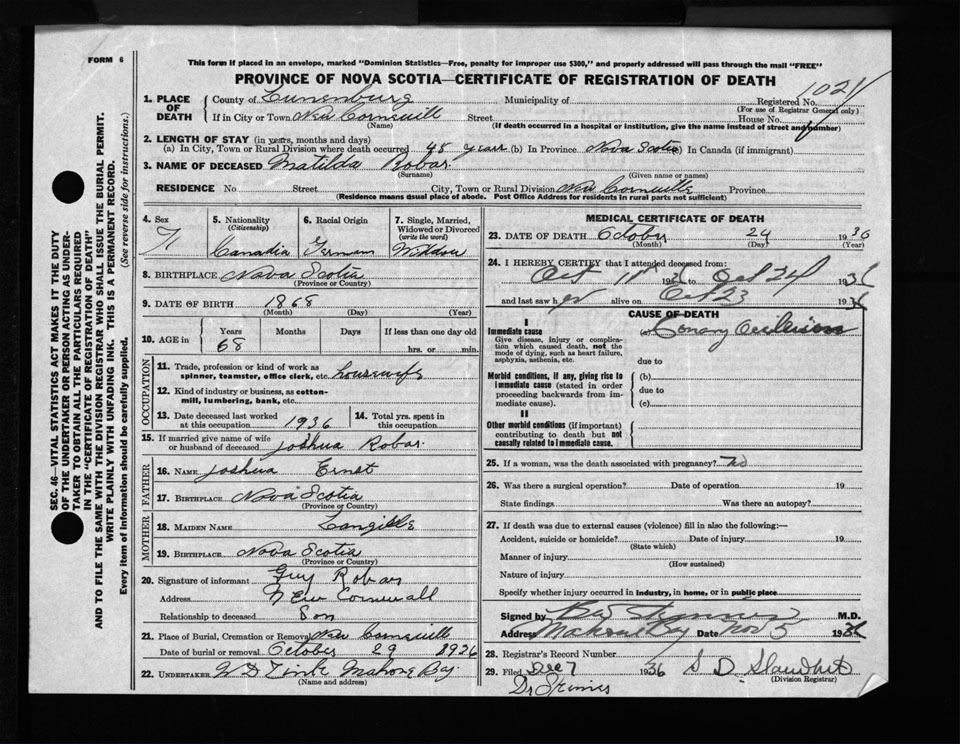 FORM 6
This form if placed in an envelope, marked "Dominion Statistics—Free, penalty for improper use $300," and properly addressed will pass through the mail "FREE"
PROVINCE OF NOVA SCOTIA—CERTIFICATE OF REGISTRATION OF DEATH
1. PLACE OF DEATH
County of Lunenburg Municipality of Registered No. 1021
(For use of Registrar General only)
If in City or Town New Cornwill Street House No.
(Name) (If death occurred in a hospital or institution, give the name instead of street and number)
2. LENGTH OF STAY (in years, months and days)
(a) In City, Town or Rural Division where death occurred 48 years (b) In Province Nova Scotia In Canada (if immigrant)
3. NAME OF DECEASED Matilda Robar
(Surname) (Given name or names)
RESIDENCE No Street City, Town or Rural Division Province
(Residence means usual place of abode. Post Office Address for residents in rural parts not sufficient)
4. Sex F
5. Nationality (Citizenship) Canadia
6. Racial Origin German
7. Single, Married, Widowed or Divorced (write the word) Widdow
8. BIRTHPLACE Nova Scotia
(Province or Country)
9. DATE OF BIRTH 1868
(Month) (Day) (Year)
10. AGE in Years Months Days If less than one day old
68 hrs. or min.
OCCUPATION
11. Trade, profession or kind of work as spinner, teamster, office clerk, etc. housewife
12. Kind of industry or business, as cotton-mill, lumbering, bank, etc.
13. Date deceased last worked at this occupation 1936
14. Total yrs. spent in this occupation
15. If married give name of wife or husband of deceased Joshua Robar
FATHER
16. NAME Joshua Ernst
17. BIRTHPLACE Nova Scotia
(Province or Country)
MOTHER
18. MAIDEN NAME Langille
19. BIRTHPLACE Nova Scotia
(Province or Country)
20. Signature of informant Guy Robar
Address New Cornwall
Relationship to deceased Son
21. Place of Burial, Cremation or Removal New Cornwill
Date of burial or removal October 29 1926
22. UNDERTAKER Mahone Bay
(Name and address)
MEDICAL CERTIFICATE OF DEATH
23. DATE OF DEATH October 24 1936
(Month) (Day) (Year)
24. I HEREBY CERTIFY that I attended deceased from:
Oct 11th 1936 Oct 24 1936
and last saw her alive on Oct 23 1936
CAUSE OF DEATH
I
Immediate cause (a)
Give disease, injury or complication which caused death, not the mode of dying, such as heart failure, asphyxia, asthenia, etc.
due to
Morbid conditions, if any, giving rise to immediate cause (stated in order proceeding backwards from immediate cause).
(b)
due to
(c)
II
Other morbid conditions (if important) contributing to death but not causally related to immediate cause.
25. If a woman, was the death associated with pregnancy? No
26. Was there a surgical operation? Date of operation 19
State findings Was there an autopsy?
27. If death was due to external causes (violence) fill in also the following:—
Accident, suicide or homicide? Date of injury 19
(State which)
Manner of injury
(How sustained)
Nature of injury
Specify whether injury occurred in industry, in home, or in public place
Signed by M.D.
Address Mahone Bay Date Nov 3 1936
28. Registrar's Record Number
29. Filed Dec 7 1936
(Division Registrar)
SEC. 46—VITAL STATISTICS ACT MAKES IT THE DUTY
OF THE UNDERTAKER OR PERSON ACTING AS UNDER-
TAKER TO OBTAIN ALL THE PARTICULARS REQUIRED
IN THE "CERTIFICATE OF REGISTRATION OF DEATH"
AND TO FILE THE SAME WITH THE DIVISION REGISTRAR WHO SHALL ISSUE THE BURIAL PERMIT.
WRITE PLAINLY WITH UNFADING INK. THIS IS A PERMANENT RECORD.
Every item of Information should be carefully supplied. (See reverse side for instructions.)